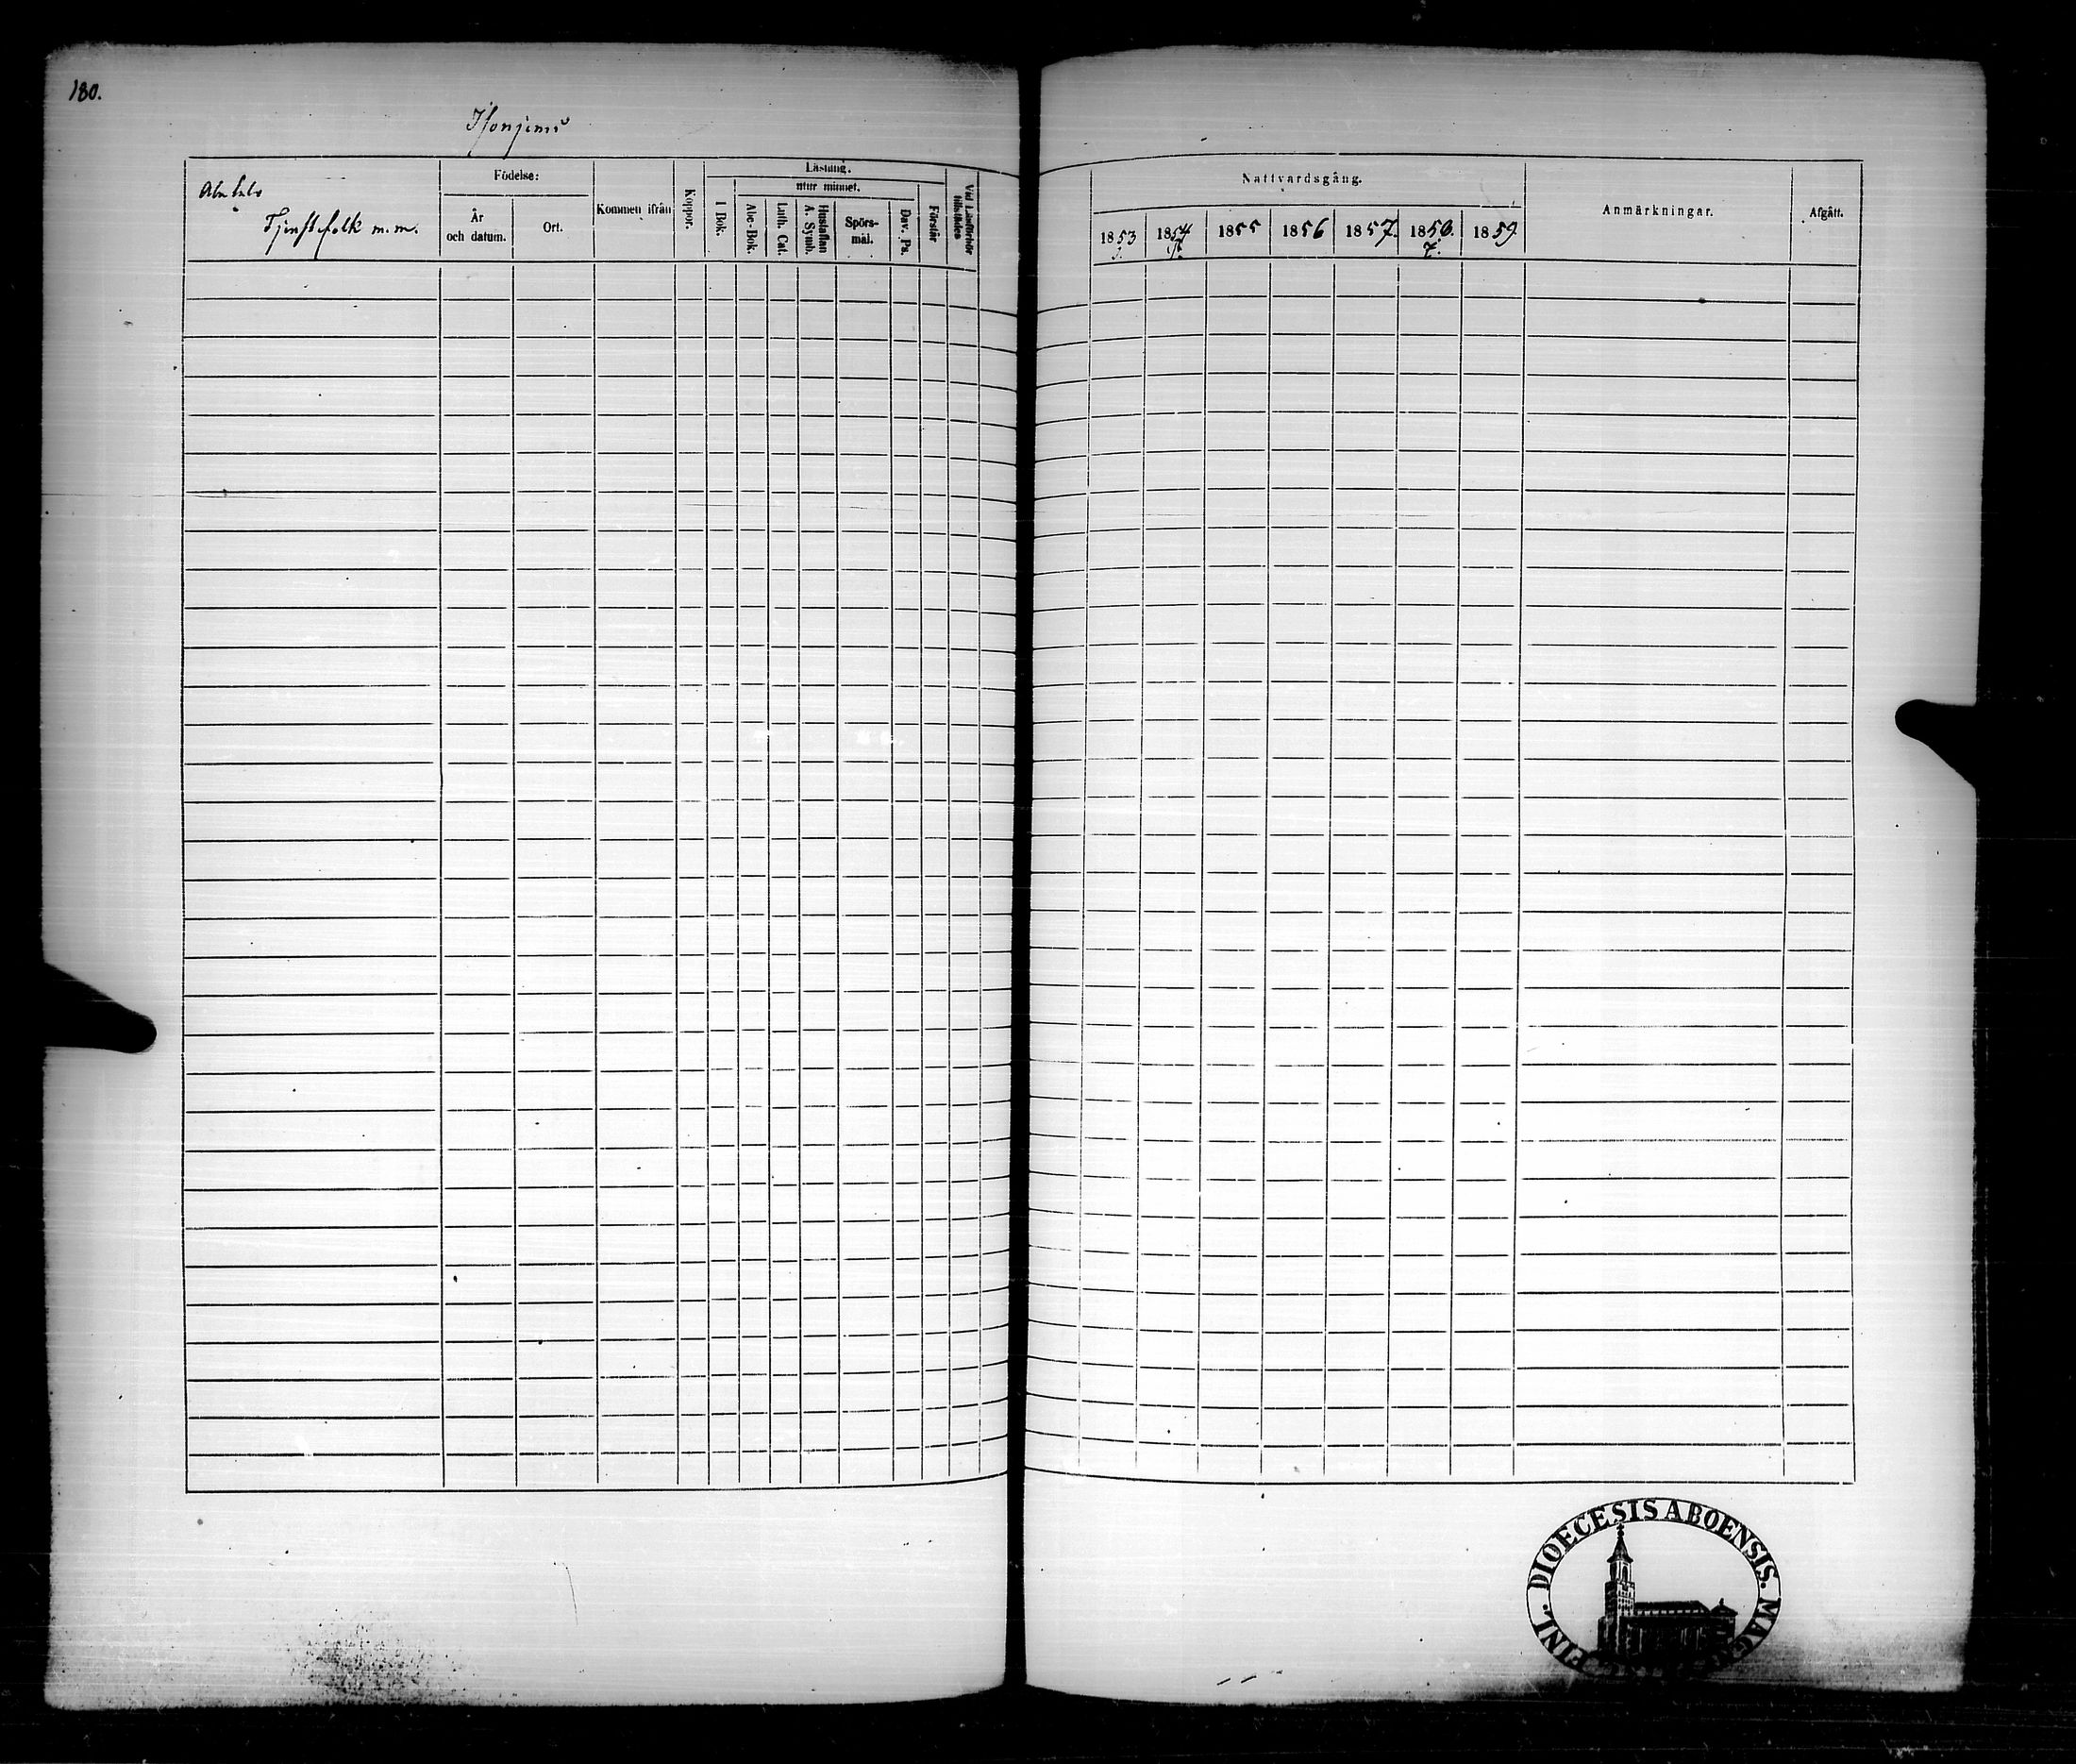 180.
Isonjemi
Tjenstefolk m. m.
Födelse:
År
och datum.
Ort.
Kommen ifrån
Koppor.
Läsning.
I Bok.
utur minnet.
Abc-Bok.
Luth. Cat.
Hustaflan
A. Symb.
Spörs-
mål.
Dav. Ps.
Förstår
Vid Läsförhör
tillstädes
Nattvardsgång.
1853
1854
1855
1856
1857.
1858.
1859.
Anmärkningar.
Afgått.
DIOECESIS ABOENSIS.